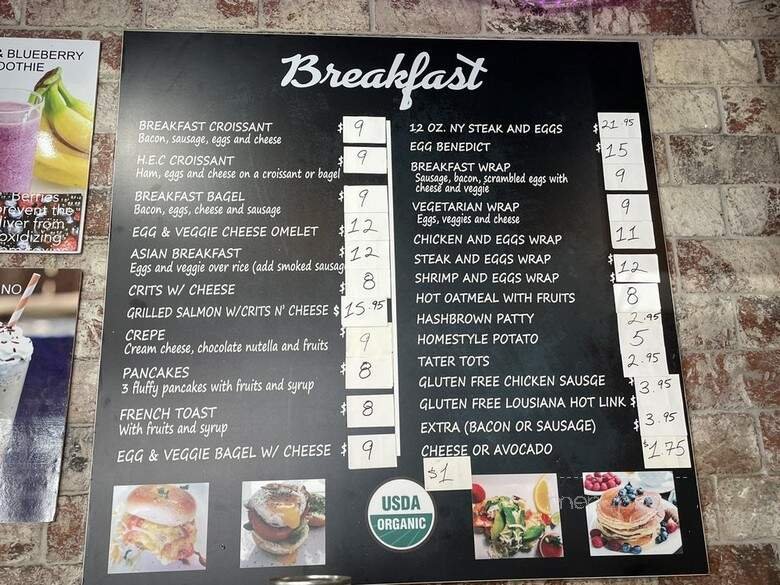 & BLUEBERRY
OOTHIE
Berries
prevent the
liver from
oxidizing
NO
Breakfast
BREAKFAST CROISSANT $ 9
Bacon, sausage, eggs and cheese
H.E.C CROISSANT $ 9
Ham, eggs and cheese on a croissant or bagel
BREAKFAST BAGEL $ 9
Bacon, eggs, cheese and sausage
EGG & VEGGIE CHEESE OMELET $ 12
ASIAN BREAKFAST 12
Eggs and veggie over rice (add smoked sausag
CRITS W/ CHEESE 8
GRILLED SALMON W/CRITS N' CHEESE $ 15.95
CREPE 9
Cream cheese, chocolate nutella and fruits
PANCAKES 8
3 fluffy pancakes with fruits and syrup
FRENCH TOAST $ 8
With fruits and syrup
EGG & VEGGIE BAGEL W/ CHEESE $ 9
12 OZ. NY STEAK AND EGGS $ 21.95
EGG BENEDICT $ 15
BREAKFAST WRAP 9
Sausage, bacon, scrambled eggs with
cheese and veggie
VEGETARIAN WRAP 9
Eggs, veggies and cheese
CHICKEN AND EGGS WRAP 11
STEAK AND EGGS WRAP
SHRIMP AND EGGS WRAP $ 12
HOT OATMEAL WITH FRUITS 8
HASHBROWN PATTY 2.95
HOMESTYLE POTATO 5
TATER TOTS 2.95
GLUTEN FREE CHICKEN SAUSGE $ 3.95
GLUTEN FREE LOUSIANA HOT LINK $
EXTRA (BACON OR SAUSAGE) 3.95
CHEESE OR AVOCADO $1.75
$1
USDA
ORGANIC